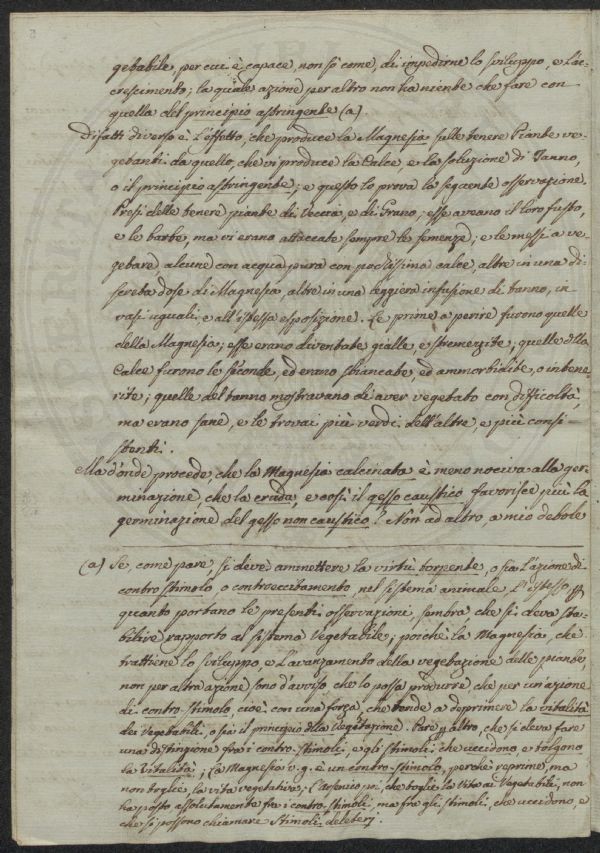 getabile, per cui è capace, non sò come, di impedirne lo sviluppo, e l'ac-
crescimento; la quale azione per altro non ha niente che fare con
quella del principio astringente (a).
Difatti diverso è l'effetto, che produce la Magnesia sulle tenere Piante ve-
getanti da quello, che vi produce la Calce, e la soluzione di Tanno,
o il principio astringente; e questo lo prova la seguente osservazione.
Presi delle tenere piante di Veccia, e di Grano; esse aveano il loro fusto,
e le barbe, ma vi erano attaccate sempre le semenze; e le messi a ve-
getare, alcune con acqua pura con pochissima calce, altre in una di-
screta dose di Magnesia, altre in una leggiera infusione di tanno, in
vasi uguali, e all'istessa esposizione. Le prime a perire furono quelle
della Magnesia; esse erano diventate gialle, e stremezite; quelle della
Calce furono le seconde, ed erano sbiancate, ed ammorbidite, o intene-
rite; quelle del tanno mostravano di aver vegetato con difficoltà,
ma erano sane, e le trovai più verdi dell'altre, e più consi-
stenti.
Ma d'onde procede, che la Magnesia calcinata è meno nociva alla ger-
minazione, che la cruda, e così il gesso caustico favorisce più la
germinazione del gesso non caustico? Non ad altro, a mio debole
(a) Se, come pare, si deve ammettere la virtù torpente, o sia l'azione di
controstimolo, o controeccitamento, nel sistema animale, l'istesso, per
quanto portano le presenti osservazioni, sembra che si deva sta-
bilire rapporto al sistema Vegetabile; poichè la Magnesia, che
trattiene lo sviluppo, e l'avanzamento della vegetazione delle piante,
non per altra azione sono d'avviso che lo possa produrre, che per un'azione
di contro-stimolo, cioè con una forza, che tende a deprimere la vitalità
dei Vegetabili, o sia il principio della Vegetazione. Pare per altro, che si deva fare
una distinzione fra i contro-stimoli, e gli stimoli, che uccidono, e tolgono
la Vitalità; la Magnesia v. g. è un contro-stimolo, perchè reprime, ma
non toglie, la vita vegetativa; l'arsenico poi, che toglie la Vita ai Vegetabili, non
va posto assolutamente fra i contro-stimoli, ma fra gli stimoli, che uccidono, e
che si possono chiamare Stimoli deleterj.